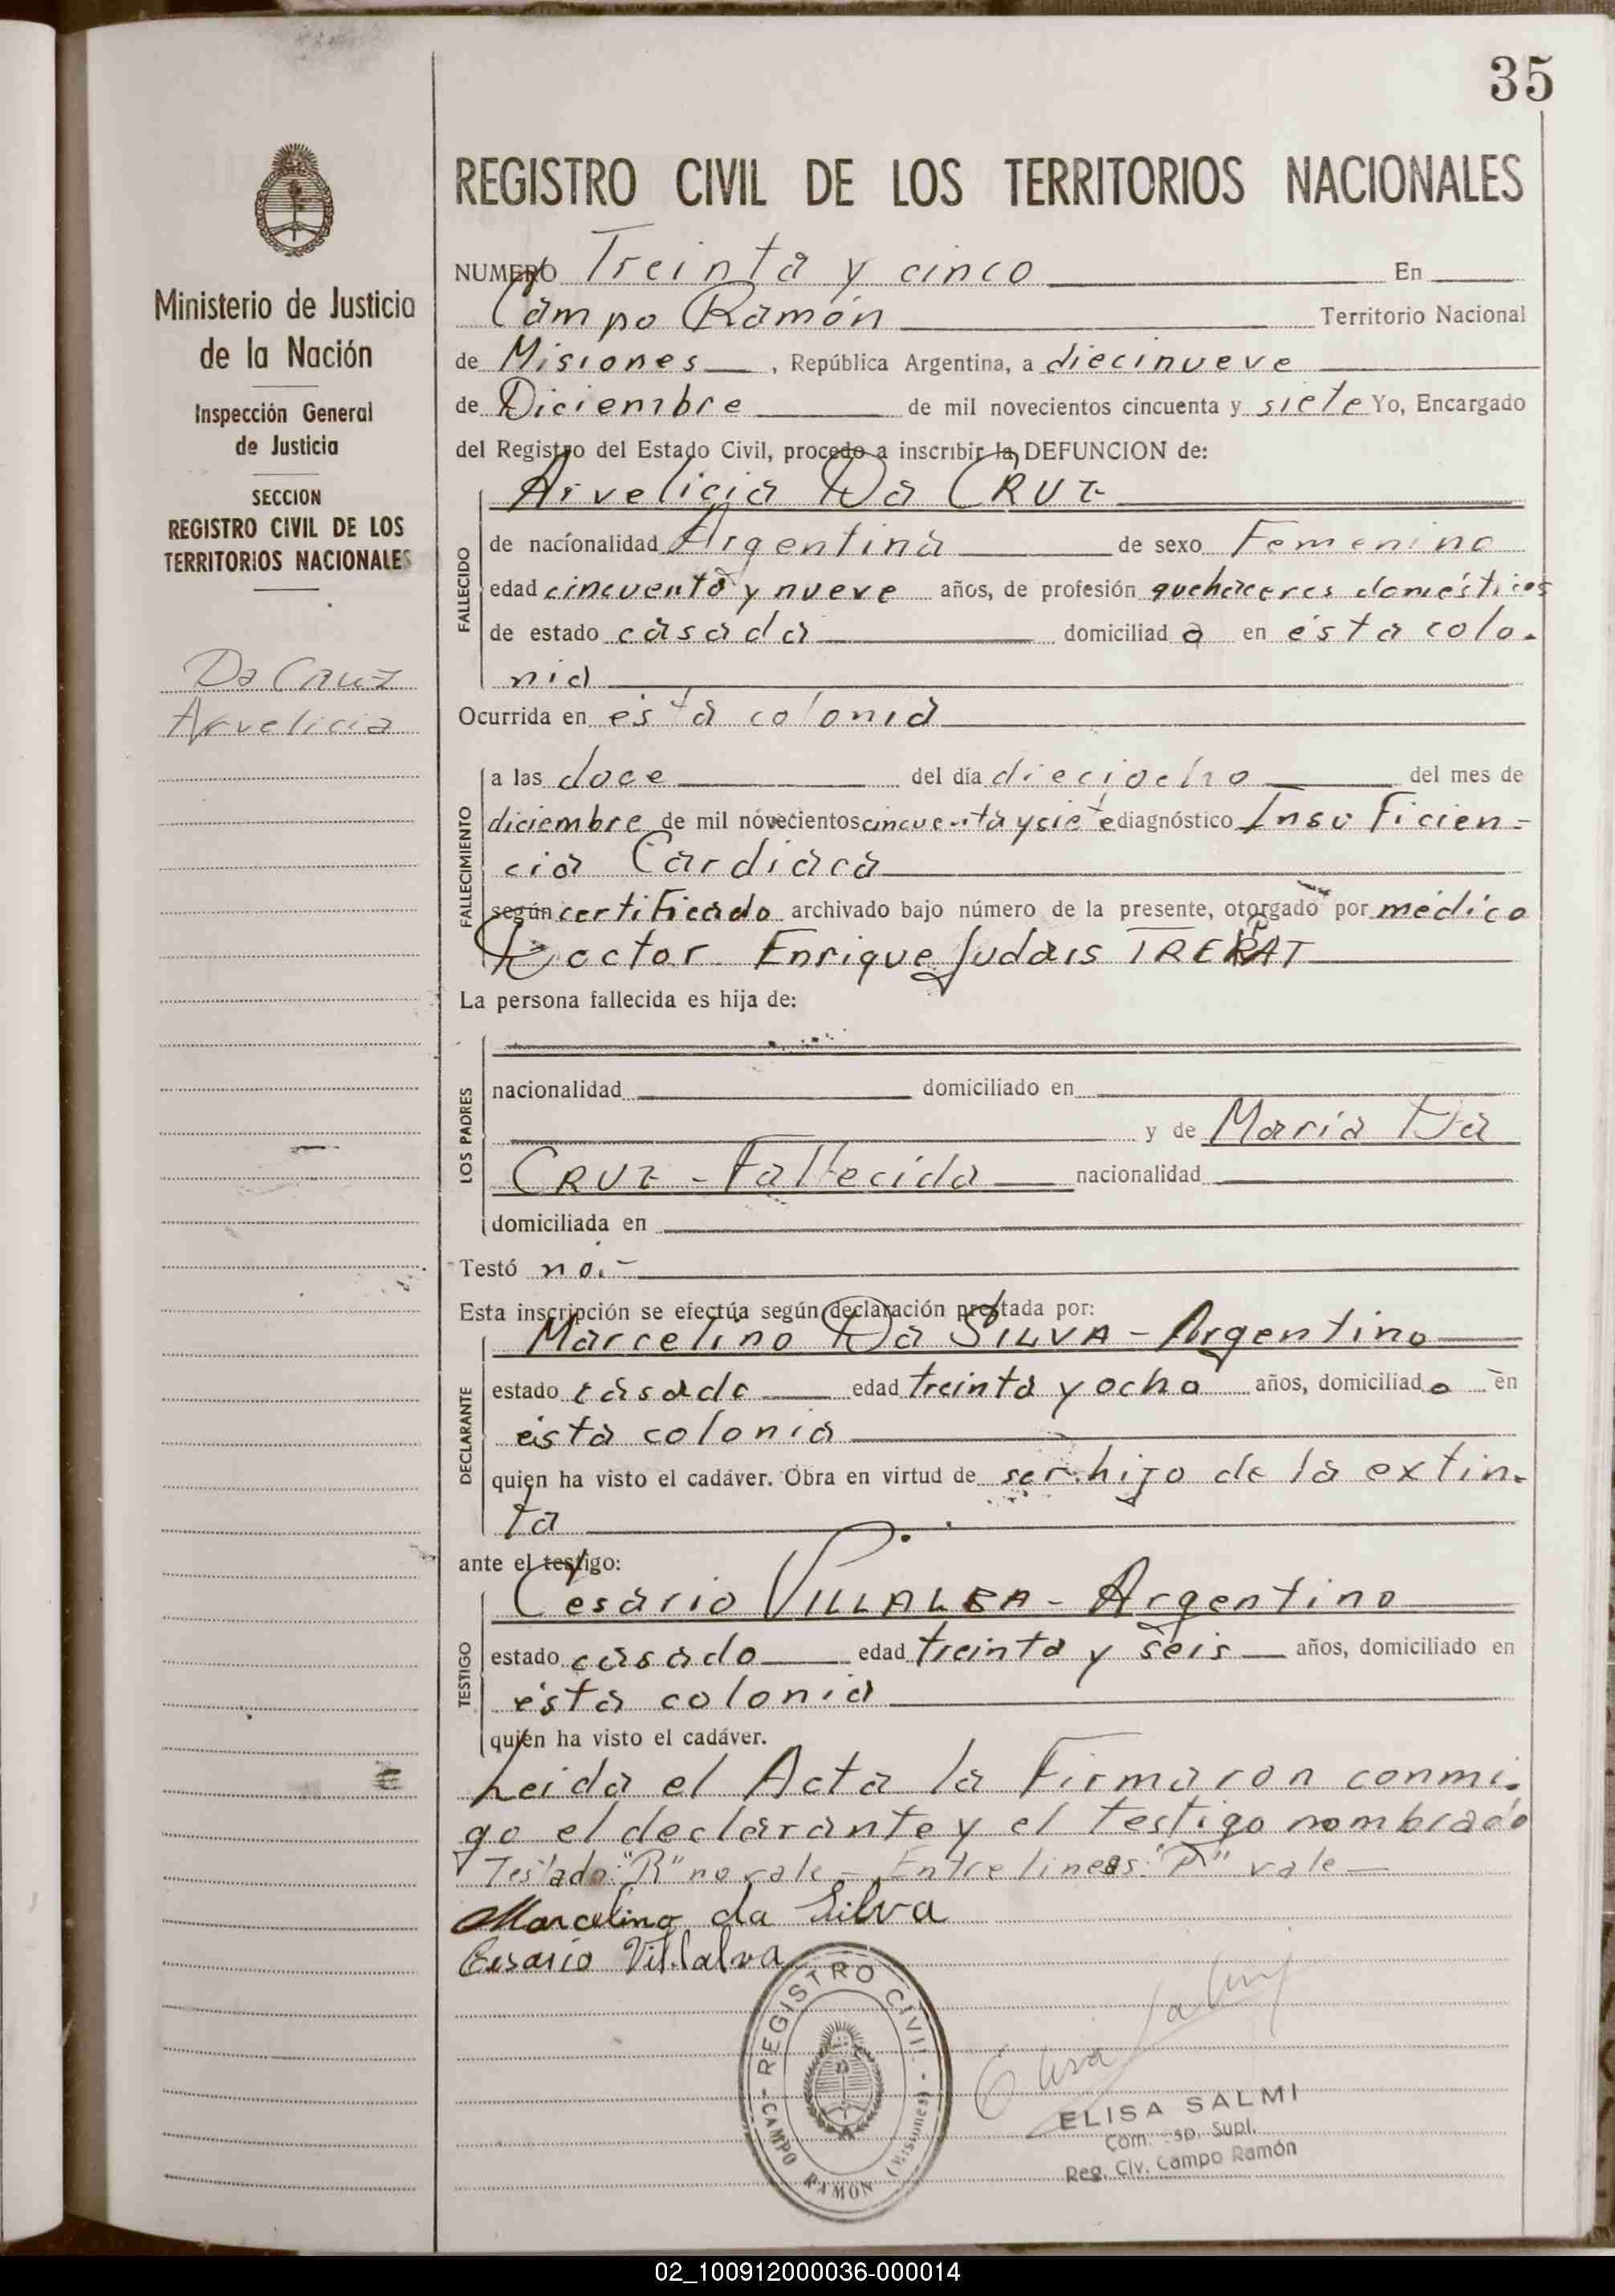 35
REGISTRO CIVIL DE LOS TERRITORIOS NACIONALES
Ministerio de Justicia
de la Nación
Inspección General
de Justicia
SECCION
REGISTRO CIVIL DE LOS
TERRITORIOS NACIONALES
Da Cruz
Arvelicia
NUMERO Treinta y cinco En
Campo Ramón Territorio Nacional
de Misiones, República Argentina, a diecinueve
de Diciembre de mil novecientos cincuenta y siete Yo, Encargado
del Registro del Estado Civil, procedo a inscribir la DEFUNCION de:
Arvelicia Da CRUZ
FALLECIDO
de nacionalidad Argentina de sexo Femenino
edad cincuenta y nueve años, de profesión quehaceres domésticos
de estado casada domiciliad a en ésta colo-
nia
Ocurrida en ésta colonia
FALLECIMIENTO
a las doce del día dieciocho del mes de
diciembre de mil novecientos cincuenta y siete diagnóstico Insuficien=
cia Cardiaca
según certificado archivado bajo número de la presente, otorgado por médico
Doctor Enrique Judais TRERAT
P
La persona fallecida es hija de:
LOS PADRES
nacionalidad domiciliado en
y de María Da
CRUZ - Fallecida nacionalidad
domiciliada en
Testó no.-
Esta inscripción se efectúa según declaración prestada por:
Marcelino Da SILVA - Argentino
DECLARANTE
estado casado edad treinta y ocho años, domiciliad o en
ésta colonia
quien ha visto el cadáver. Obra en virtud de ser hijo de la extin-
ta
ante el testigo:
Cesário VILLALBA - Argentino
TESTIGO
estado casado edad treinta y seis años, domiciliado en
ésta colonia
quien ha visto el cadáver.
Leida el Acta la Firmaron conmi-
go el declarante y el testigo nombrado
Testado: "R" no vale - Entre lineas: "P" vale -
Marcelino da Silva
Cesario Villalva
REGISTRO CIVIL - CAMPO RAMÓN (Misiones)
Elisa Salmi
ELISA SALMI
Com. sp. Supl.
Reg. Civ. Campo Ramón
02_100912000036-000014